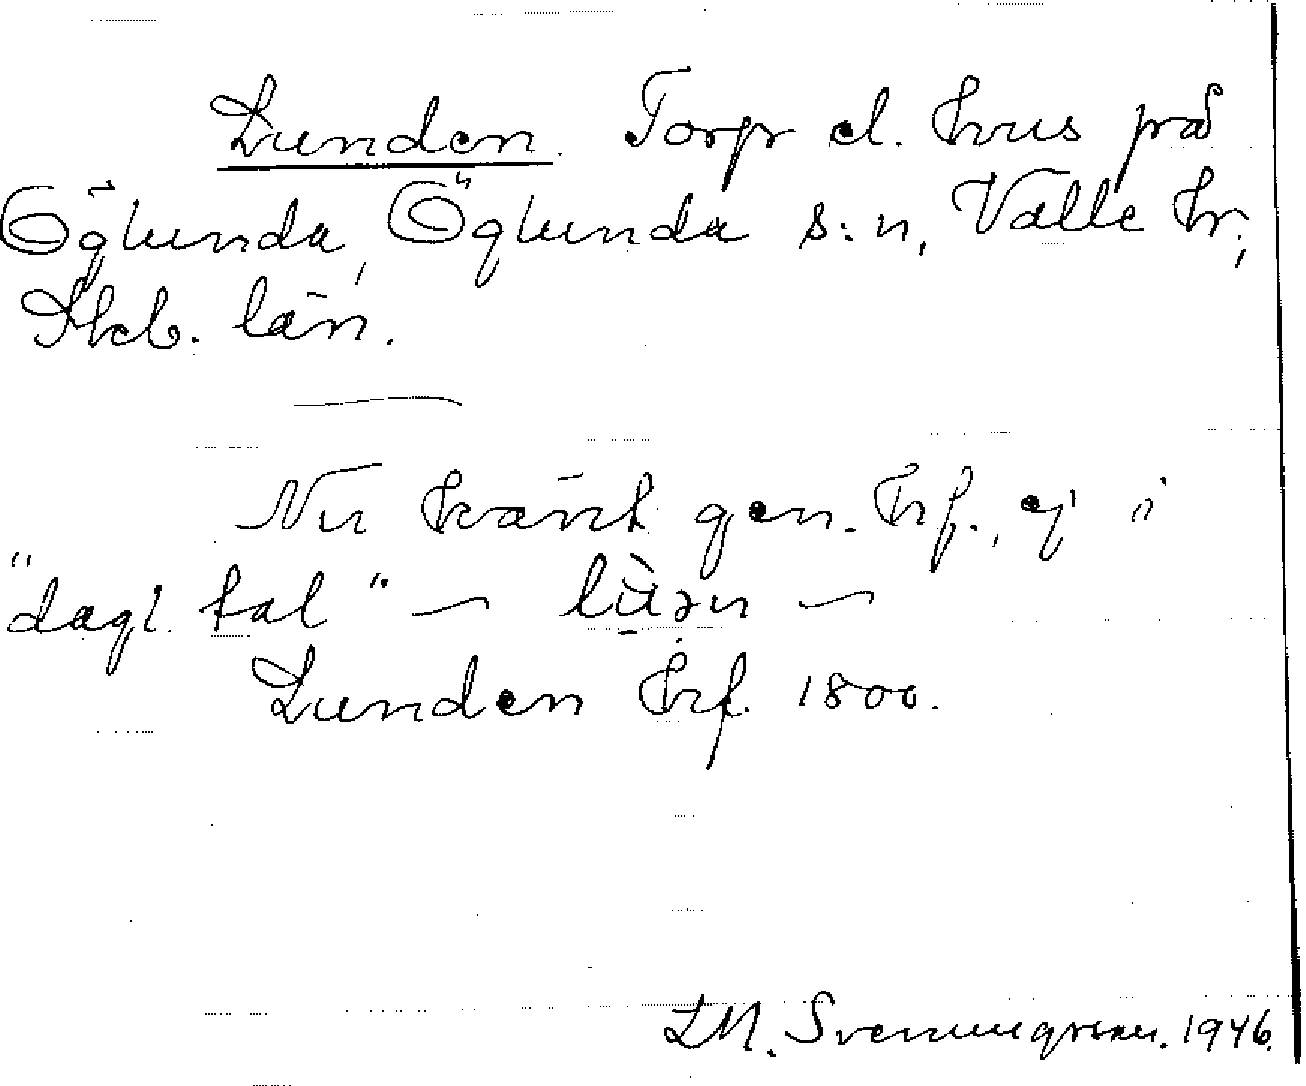 Lunden. Torp el. hus på
Öglunda, Öglunda s:n, Valle hd;
Skb. län.
Nu känt gen. hrf., ej i
"dagl. tal" —  —
Lunden hrf. 1800.
Sveningsson. 1946.